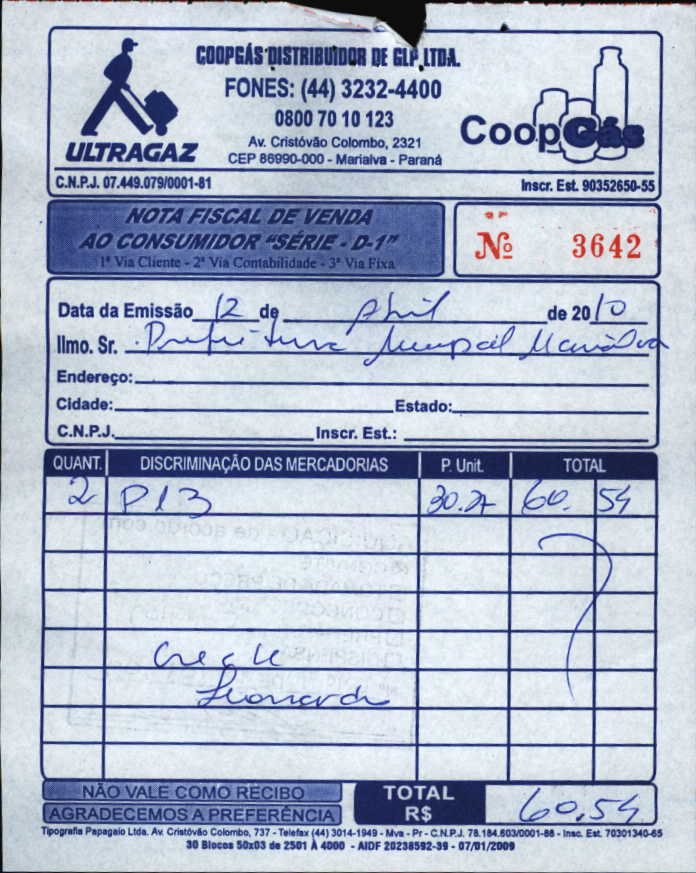 COOPGÁS DISTRIBUIDOR DE GLP LTDA.
FONES: (44) 3232-4400
0800 70 10 123
Av. Cristóvão Colombo, 2321
CEP 86990-000 - Marialva - Paraná
ULTRAGAZ
CoopGás
C.N.P.J. 07.449.079/0001-81
Inscr. Est. 90352650-55
NOTA FISCAL DE VENDA
AO CONSUMIDOR "SÉRIE - D-1"
1ª Via Cliente - 2ª Via Contabilidade - 3ª Via Fixa
Nº 3642
Data da Emissão 12 de Abril de 2010
Ilmo. Sr. Prefeitura Municipal Marialva
Endereço:
Cidade: Estado:
C.N.P.J. Inscr. Est.:
QUANT. DISCRIMINAÇÃO DAS MERCADORIAS P. Unit. TOTAL
2 P13 30.27 60.54
Creche
Leonardo
NÃO VALE COMO RECIBO
AGRADECEMOS A PREFERÊNCIA
TOTAL R$ 60,54
Tipografia Papagaio Ltda. Av. Cristóvão Colombo, 737 - Telefax (44) 3014-1949 - Mva - Pr - C.N.P.J. 78.184.603/0001-86 - Insc. Est. 70301340-65
30 Blocos 50x03 de 2501 À 4000 - AIDF 20238592-39 - 07/01/2009